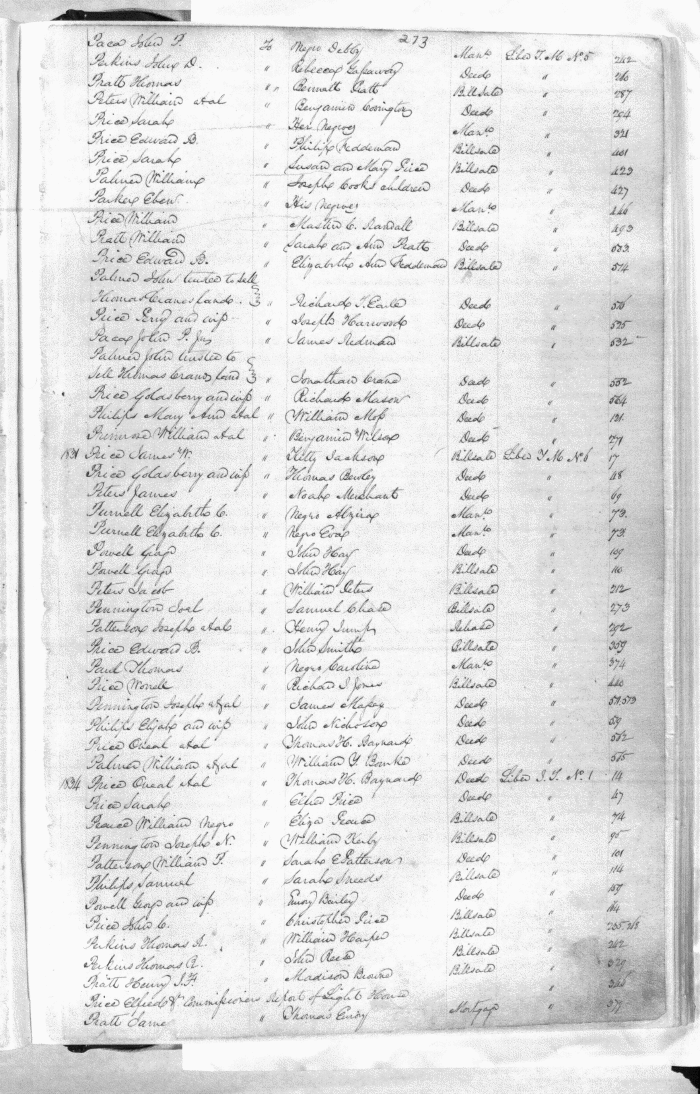 273
Paca John P. To Negro Debby Man.o Liber T. M. No 5 242
Perkins John D. " Rebecca Gafaway Deed " 260
Pratt Thomas " " Bennett Pratt Billsale " 287
Peters William et al " Benjamin Covington Deed " 294
Price Sarah " Her Negroes Man.o " 321
Price Edward B. " Philip Feddeman Billsale " 401
Price Sarah " Susan and Mary Price Billsale " 423
Palmer William " Joseph Cooks children Deed " 427
Parker Eben " His Negroes Man.o " 446
Price William " Martin C. Randall Billsale " 493
Pratt William " Sarah and Ann Pratt Deed " 533
Price Edward B. " Elizabeth Ann Feddeman Billsale " 574
Palmer John trustee to sell
Thomas Cranes land " Richard T. Earle Deed " 576
Price Perry and wife " Joseph Harwood Deed " 595
Paca John P. Jur " James Redman Billsale " 532
Palmer John trustee to
sell Thomas Cranes land " Jonathan Crane Deed " 552
Price Goldsberry and wife " Richard Mason Deed " 564
Philips Mary Ann et al " William Moss Deed " 121
Primrose William et al " Benjamin Wilson Deed " 271
1831 Price James W. " Kitty Jackson Billsale Liber T M No 6 17
Price Goldsberry and wife " Thomas Bewley Deed " 48
Peters James " Noah Merchant Deed " 69
Purnell Elizabeth C. " Negro Alzira Man.o " 73
Purnell Elizabeth C. " Negro Eva Man.o " 73
Powell Geo " John Hay Deed " 109
Powell Geo " John Hay Billsale " 110
Peters Jacob " William Peters Billsale " 212
Pennington Joel " Samuel Chase Billsale " 273
Patterson Joseph et al " Henry Jump Release " 292
Price Edward B. " John Smith Billsale " 359
Paul Thomas " Negro Caroline Man.o " 374
Price Worell " Richard I. Jones Billsale " 440
Pennington Joseph et al " James Massey Deed " 573
Philips Elijah and wife " John Nicholson Deed " 59
Price Oneal et al " Thomas H. Baynard Deed " 552
Palmer William et al " William Y Bourke Deed " 565
1834 Price Oneal et al " Thomas H. Baynard Deed Liber J. T. No 1 14
Price Sarah " Price Deed " 47
Pearce William Negro " Eliza Pearce Billsale " 74
Pennington Joseph N. " William Kerby Billsale " 95
Patterson William P. " Sarah E Patterson Deed " 101
Philips Samuel " Sarah Sneeds Billsale " 114
Powell George and wife " Emory Deed " 159
Price John C. " Christopher Price Billsale " 164
Perkins Thomas R. " William Harper Billsale "
Perkins Thomas R. " John Reese Billsale " 242
Pratt Henry " Madison Browne Billsale " 329
Price Commissioners Report of Light House " 346
Pratt James " Thomas Emory Mortgage " 371